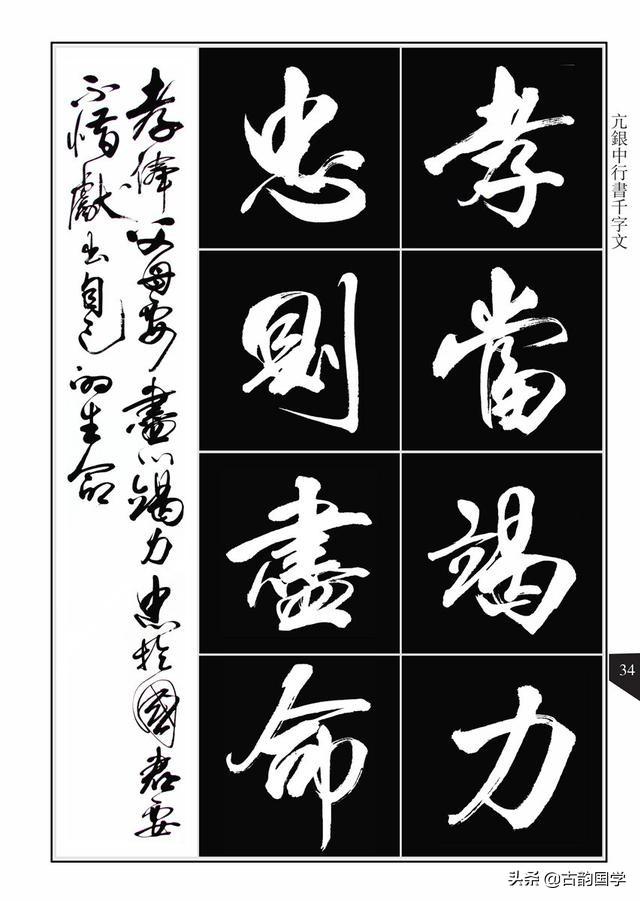 亢銀中行書千字文
34
孝當竭力
忠則盡命
孝俸父母要盡心竭力忠於國君要
不惜獻出自己的生命
头条 @古韵国学